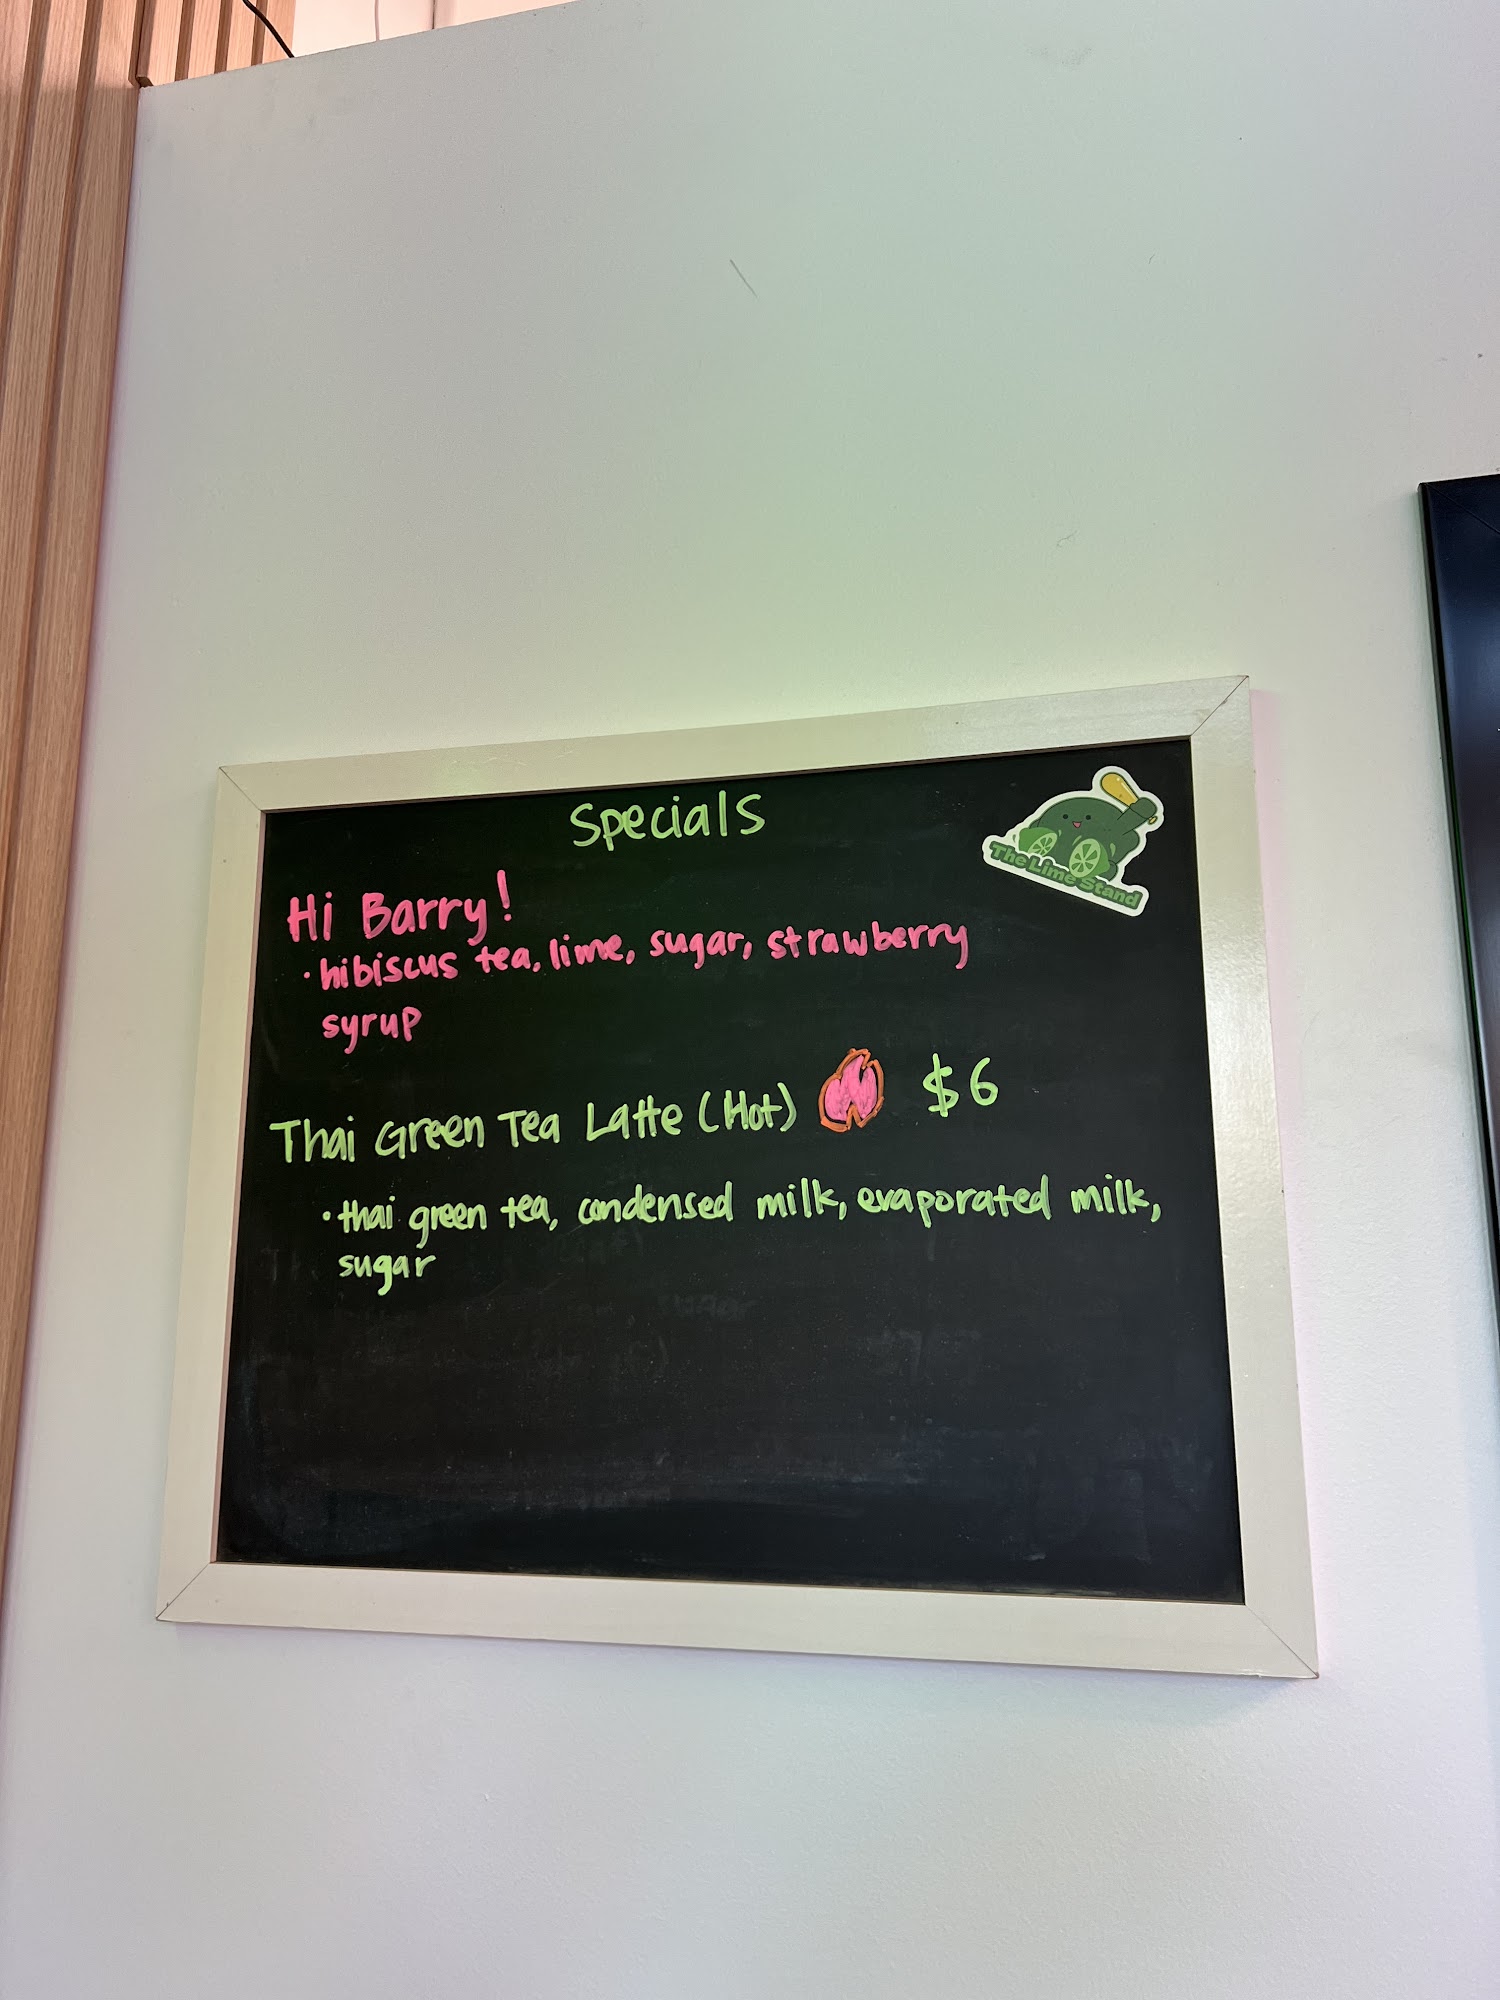 Specials
The Lime Stand
Hi Barry!
· hibiscus tea, lime, sugar, strawberry
syrup
Thai Green Tea Latte (Hot) $6
· thai green tea, condensed milk, evaporated milk,
sugar